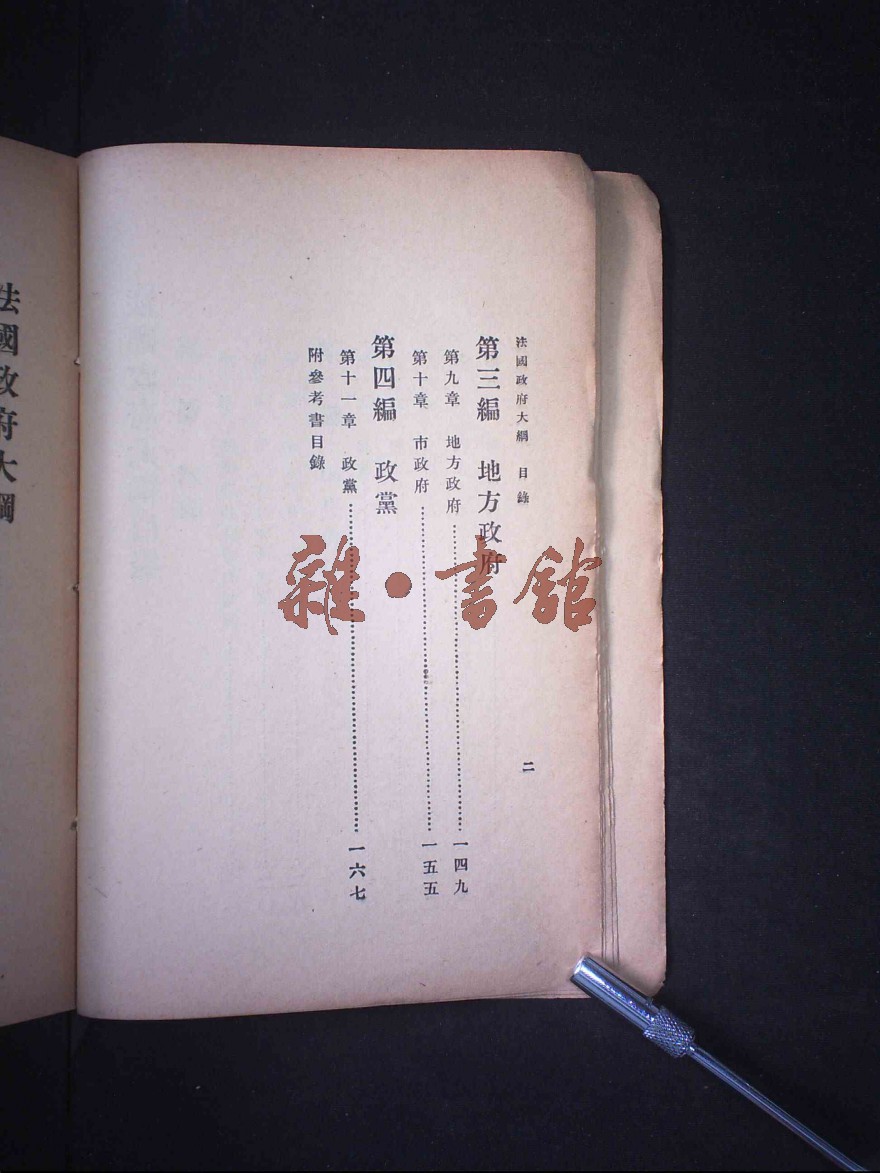 法國政府大綱 目錄
二
第三編 地方政府
第九章 地方政府 一四九
第十章 市政府 一五五
第四編 政黨
第十一章 政黨 一六七
附參考書目錄
法國政府大綱
雜·書館